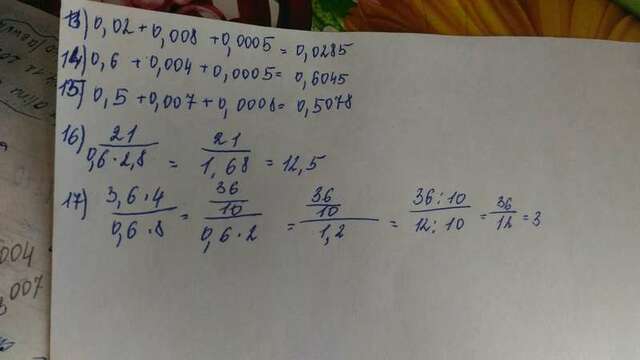 13) 0,02 + 0,008 + 0,0005 = 0,0285
14) 0,6 + 0,004 + 0,0005 = 0,6045
15) 0,5 + 0,007 + 0,0008 = 0,5078
16) 21/(0,6 · 2,8) = 21/1,68 = 12,5
17) (3,6 · 4)/(0,6 · 8) = (36/10)/(0,6 · 2) = (36/10)/1,2 = (36 : 10)/(12 : 10) = 36/12 = 3
004
007